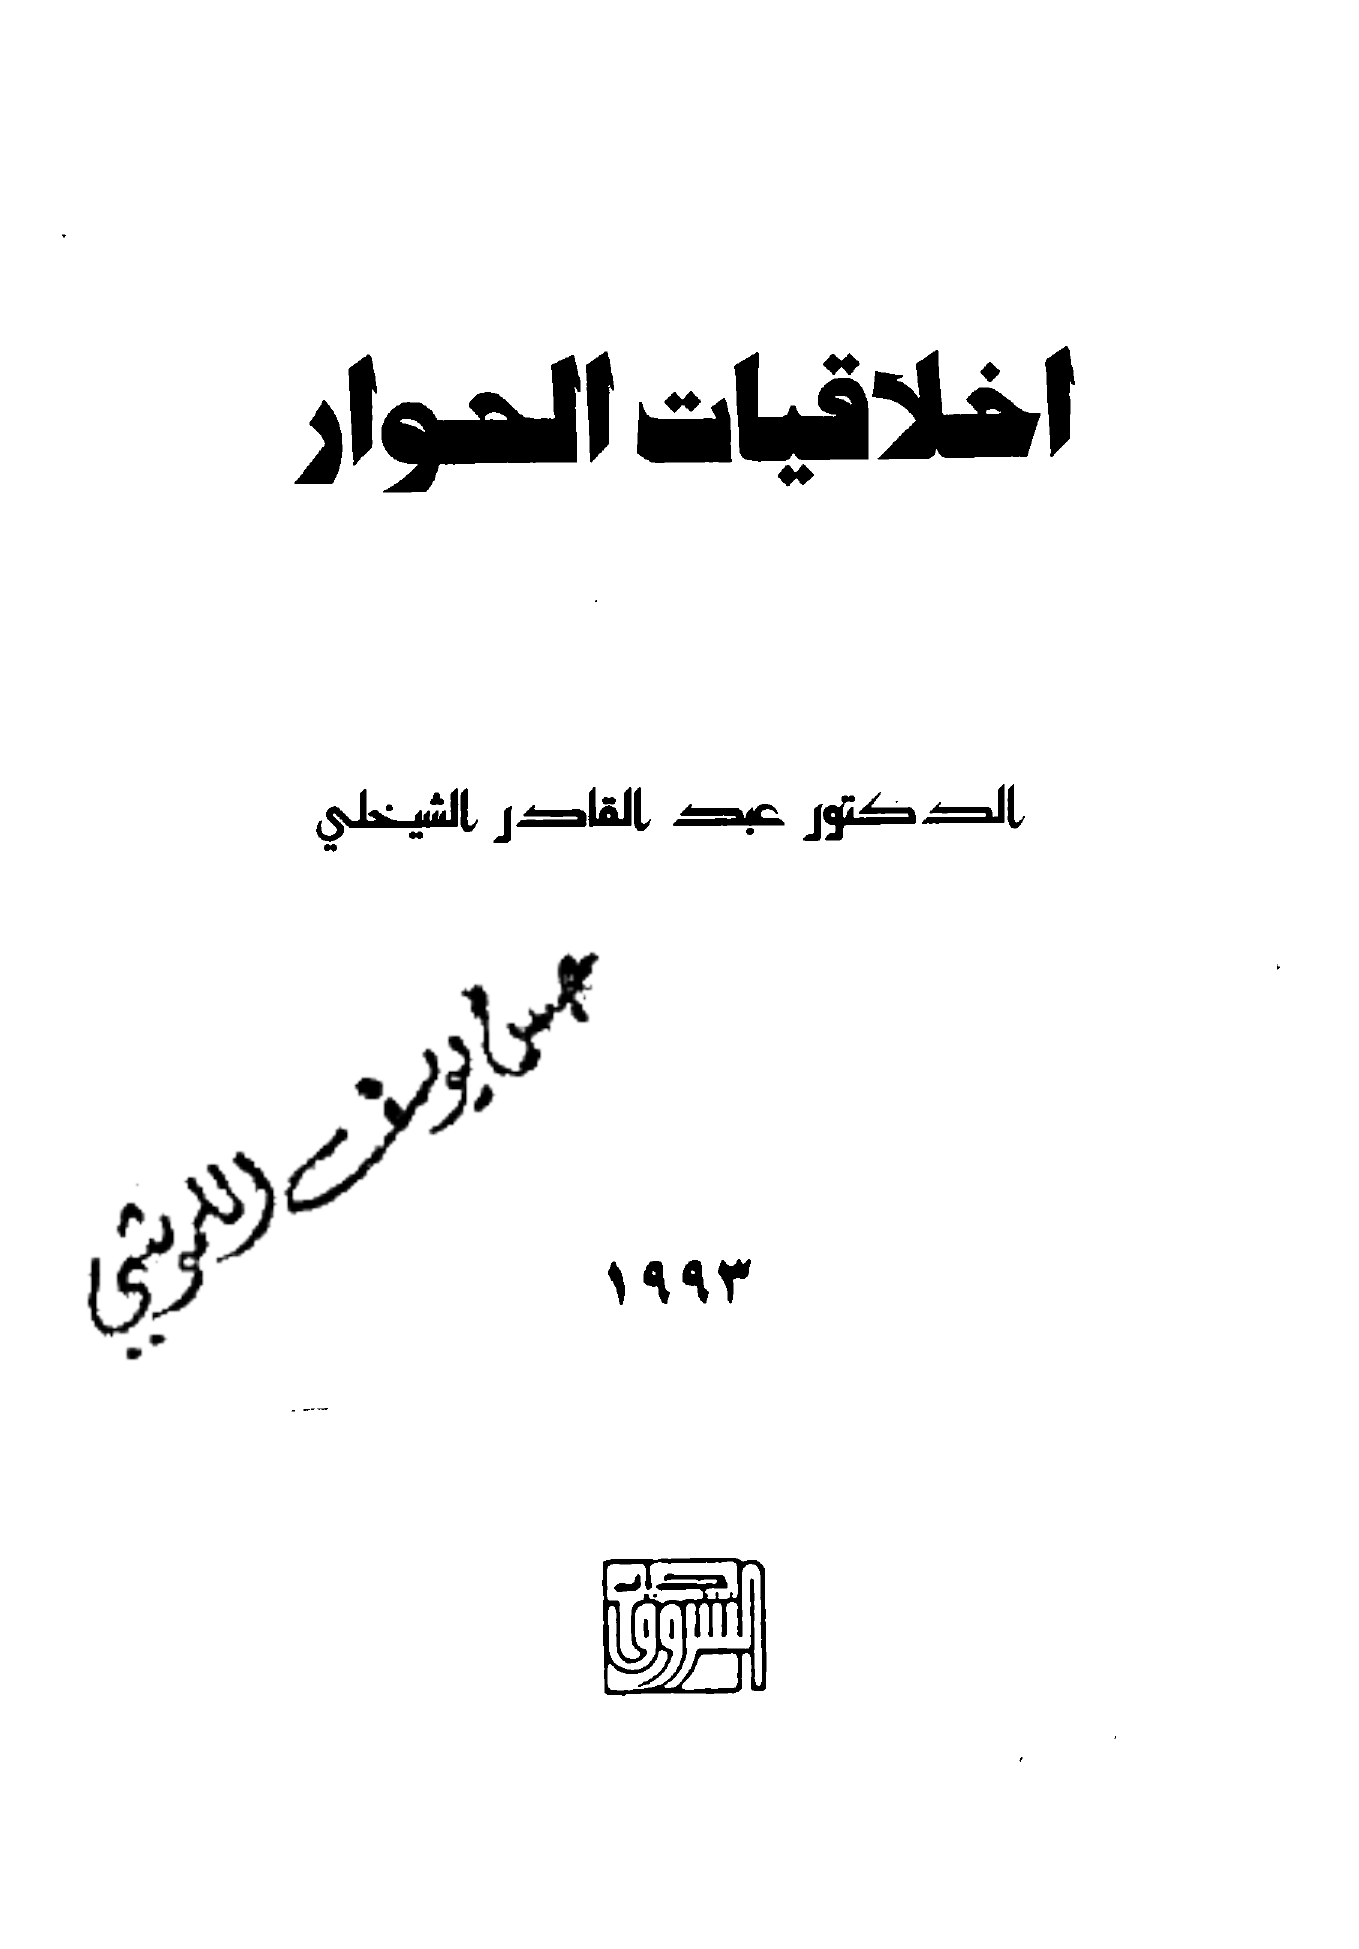 اخلاقيات الحوار
الدكتور عبد القادر الشيخلي
يوسف
١٩٩٣
دار
الشروق